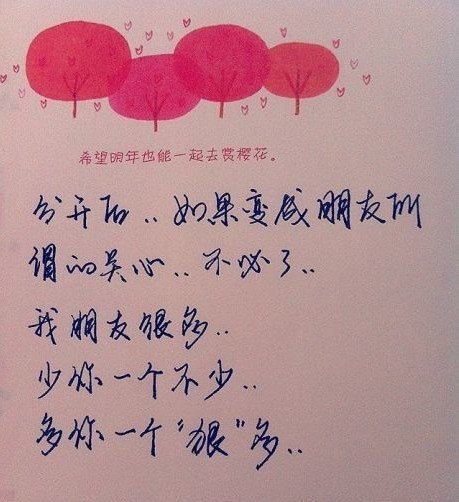 希望明年也能一起去赏樱花。
分开后..如果变成朋友所
谓的关心..不必了..
我朋友很多..
少你一个不少..
多你一个“狠”多..